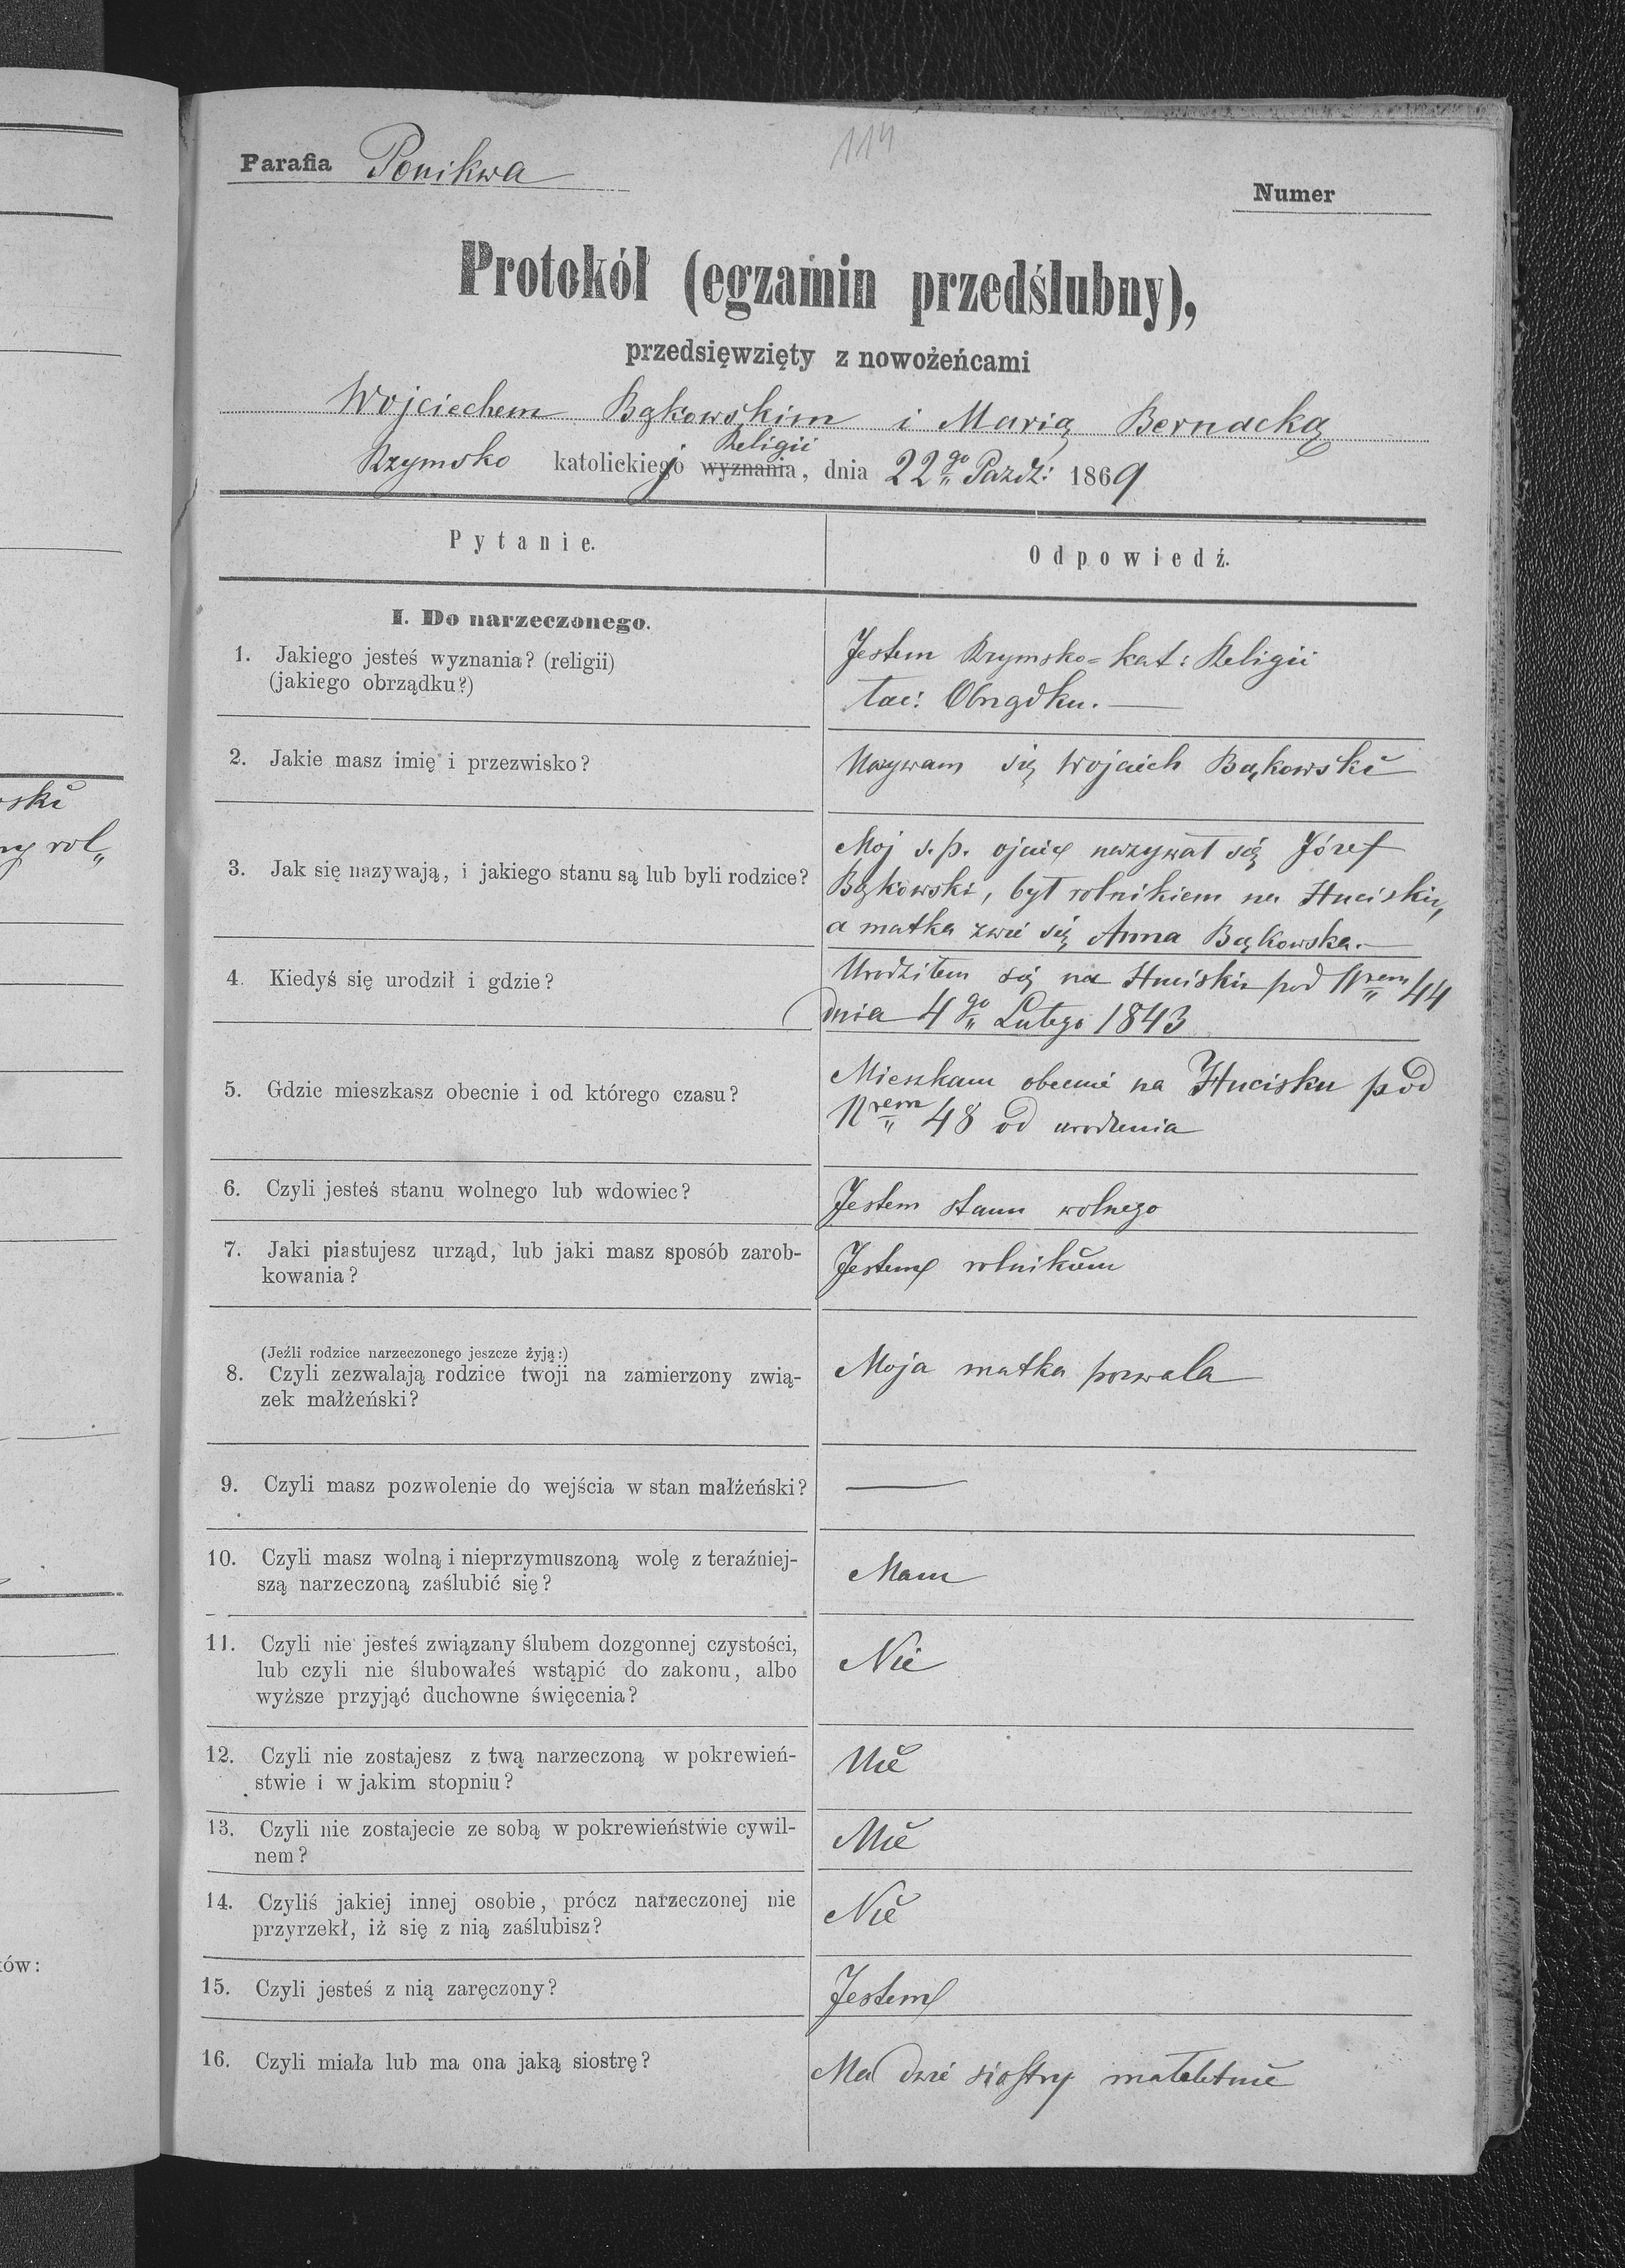 114
Parafia Ponikwa
Numer
Protokół (egzamin przedślubny),
przedsięwzięty z nowożeńcami
Wojciechem Bąkowskim i Marią Bernacką
Religii
Rzymsko katolickiej wyznania, dnia 22go Pazdź: 1869
Pytanie.
Odpowiedź.
I. Do narzeczonego.
1. Jakiego jesteś wyznania? (religii)
(jakiego obrządku?)
Jestem Rzymsko=kat: Religii
łac: Obrządku.—
2. Jakie masz imię i przezwisko?
Nazywam się Wojciech Bąkowski
3. Jak się nazywają, i jakiego stanu są lub byli rodzice?
Moj s.p. ojciec nazywał się Józef
Bąkowski, był rolnikiem na Hucisku,
a matka zwie się Anna Bąkowska.—
4. Kiedyś się urodził i gdzie?
Urodziłem się na Hucisku pod Nrem 44
dnia 4go Lutego 1843
5. Gdzie mieszkasz obecnie i od którego czasu?
Mieszkam obecnie na Hucisku pod
Nrem 48 od urodzenia
6. Czyli jesteś stanu wolnego lub wdowiec?
Jestem stanu wolnego
7. Jaki piastujesz urząd, lub jaki masz sposób zarob-
kowania?
Jestem rolnikiem
(Jeźli rodzice narzeczonego jeszcze żyją:)
8. Czyli zezwalają rodzice twoji na zamierzony zwią-
zek małżeński?
Moja matka pozwala
9. Czyli masz pozwolenie do wejścia w stan małżeński?
—
10. Czyli masz wolną i nieprzymuszoną wolę z teraźniej-
szą narzeczoną zaślubić się?
Mam
11. Czyli nie jesteś związany ślubem dozgonnej czystości,
lub czyli nie ślubowałeś wstąpić do zakonu, albo
wyższe przyjąć duchowne święcenia?
Nie
12. Czyli nie zostajesz z twą narzeczoną w pokrewień-
stwie i w jakim stopniu?
Nie
13. Czyli nie zostajecie ze sobą w pokrewieństwie cywil-
nem?
Nie
14. Czyliś jakiej innej osobie, prócz narzeczonej nie
przyrzekł, iż się z nią zaślubisz?
Nie
15. Czyli jesteś z nią zaręczony?
Jestem
16. Czyli miała lub ma ona jaką siostrę?
Ma dwie siostry małoletnie
ski
ny rol„
ków: